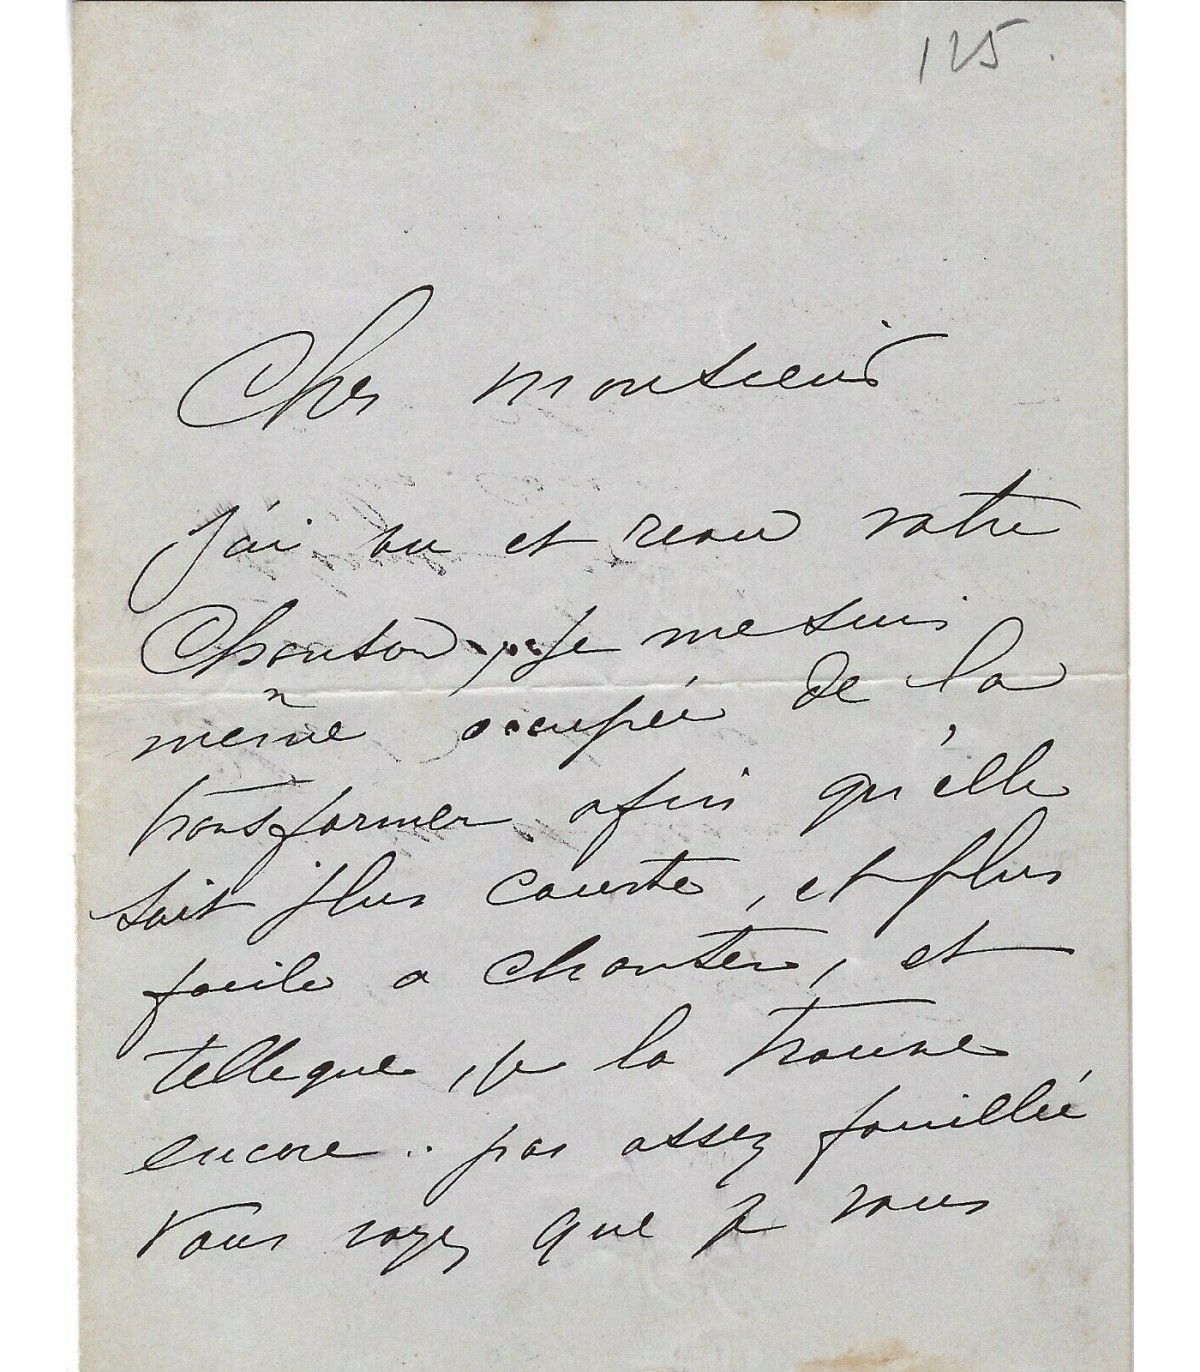 125.
Cher monsieur
J'ai vu et revu votre
Chanson, je me suis
même occupée de la
transformer afin qu'elle
soit plus courte, et plus
facile a chanter, et
telle que, je la trouve
encore.. pas assez fouillée
Vous voyez que je vous